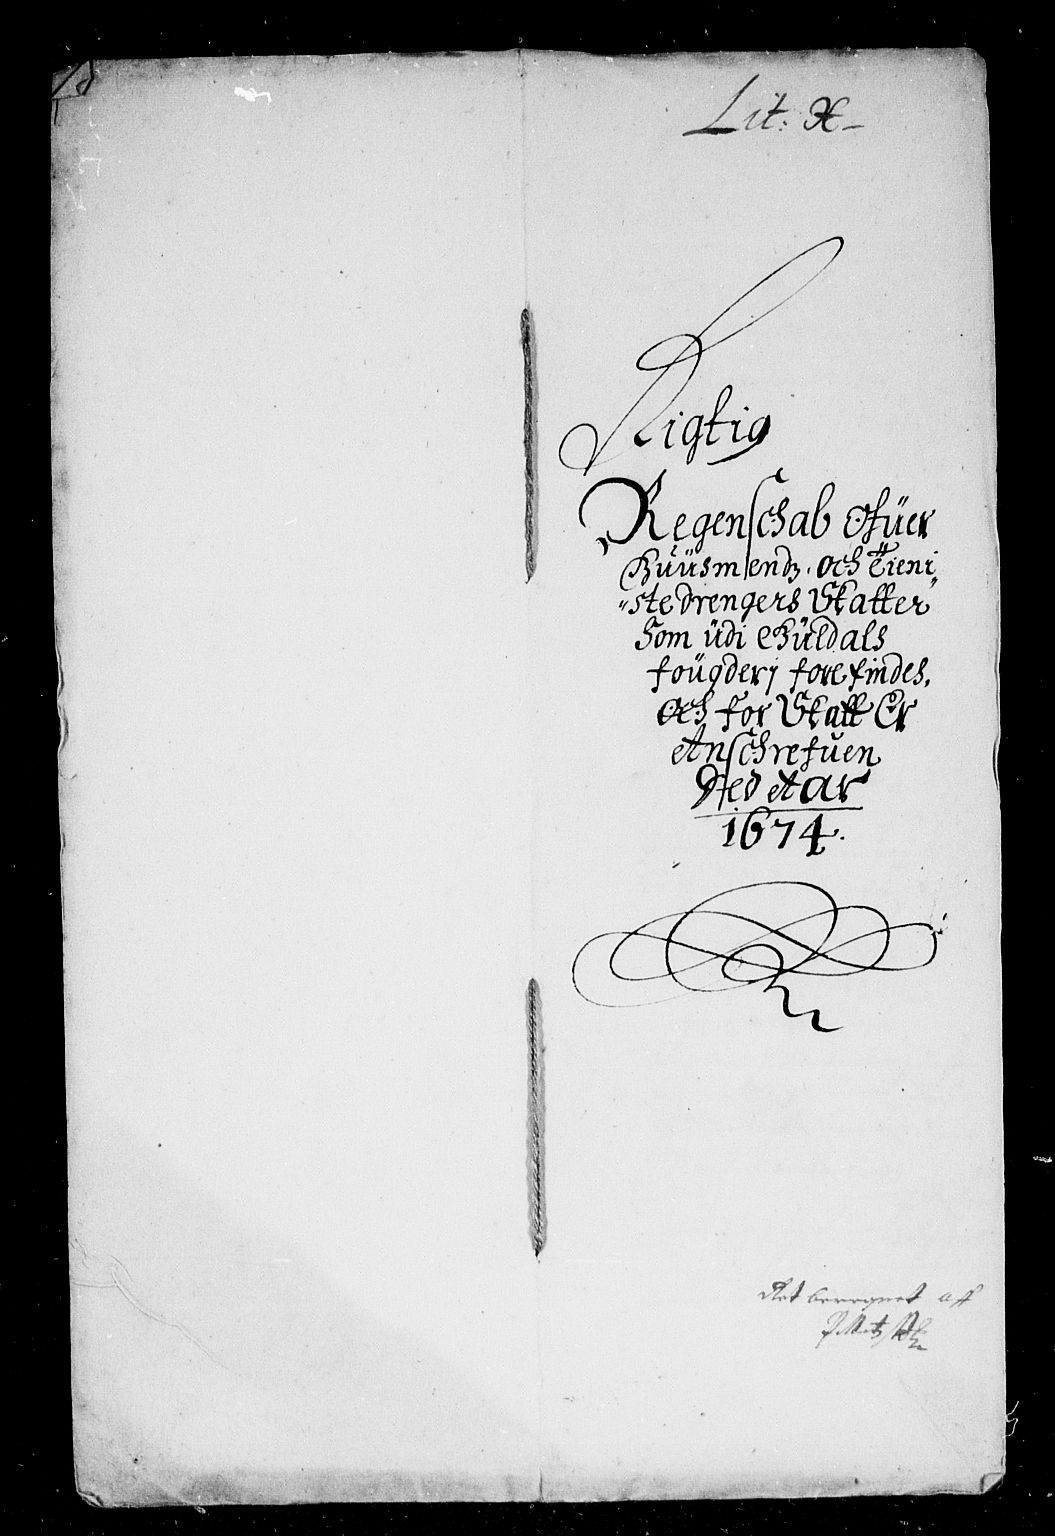 Lit: H
Rigtig
Regenschab ofüer
Huüsmendz och Tieni
"ste drengers Skatter"
Som üdi Güldals
foügderj forefindes,
och for Skatt Er
Anschrefuen
Ded Aar
1674.
Ret beregnet aff